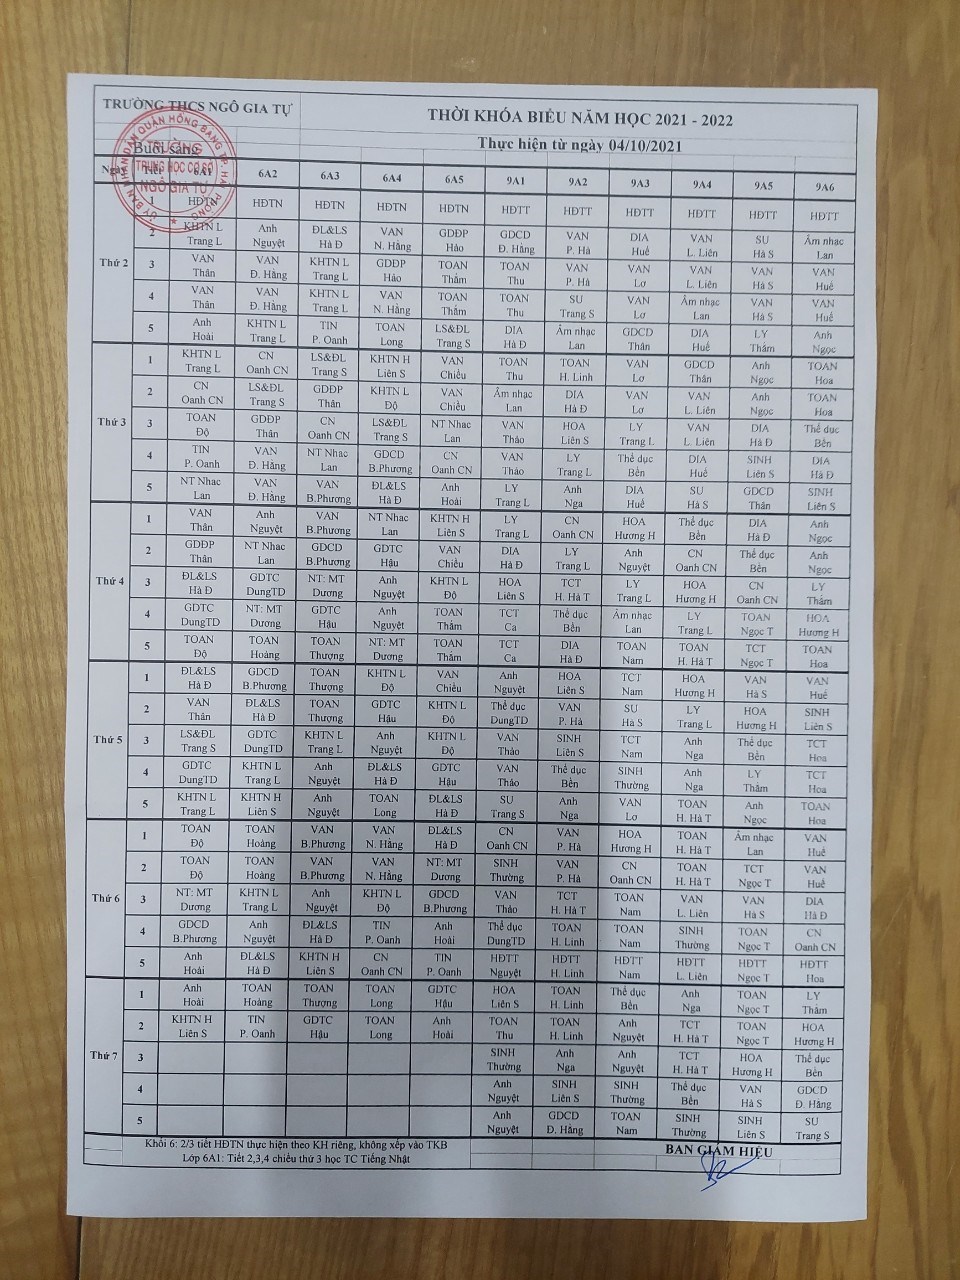 TRƯỜNG THCS NGÔ GIA TỰ
THỜI KHÓA BIỂU NĂM HỌC 2021 - 2022
Thực hiện từ ngày 04/10/2021
Buổi sáng
ỦY BAN NHÂN DÂN QUẬN HỒNG BÀNG TP. HẢI PHÒNG
TRƯỜNG
TRUNG HỌC CƠ SỞ
NGÔ GIA TỰ
Ngày Tiết 6A1 6A2 6A3 6A4 6A5 9A1 9A2 9A3 9A4 9A5 9A6
Thứ 2
1 HĐTN HĐTN HĐTN HĐTN HĐTN HĐTT HĐTT HĐTT HĐTT HĐTT HĐTT
2 KHTN L Anh ĐL&LS VAN GDĐP GDCD VAN DIA VAN SU Âm nhạc
Trang L Nguyệt Hà Đ N. Hằng Hảo Đ. Hằng P. Hà Huế L. Liên Hà S Lan
3 VAN VAN KHTN L GDĐP TOAN TOAN VAN VAN VAN VAN VAN
Thân Đ. Hằng Trang L Hảo Thắm Thu P. Hà Lơ L. Liên Hà S Huế
4 VAN VAN KHTN L VAN TOAN TOAN SU VAN Âm nhạc VAN VAN
Thân Đ. Hằng Trang L N. Hằng Thắm Thu Trang S Lơ Lan Hà S Huế
5 Anh KHTN L TIN TOAN LS&ĐL DIA Âm nhạc GDCD DIA LY Anh
Hoài Trang L P. Oanh Long Trang S Hà Đ Lan Thân Huế Thắm Ngọc
Thứ 3
1 KHTN L CN LS&ĐL KHTN H VAN TOAN TOAN VAN GDCD Anh TOAN
Trang L Oanh CN Trang S Liên S Chiều Thu H. Linh Lơ Thân Ngọc Hoa
2 CN LS&ĐL GDĐP KHTN L VAN Âm nhạc DIA VAN VAN Anh TOAN
Oanh CN Trang S Thân Độ Chiều Lan Hà Đ Lơ L. Liên Ngọc Hoa
3 TOAN GDĐP CN LS&ĐL NT Nhac VAN HOA LY VAN DIA Thể dục
Độ Thân Oanh CN Trang S Lan Thảo Liên S Trang L L. Liên Hà Đ Bền
4 TIN VAN NT Nhac GDCD CN VAN LY Thể dục DIA SINH DIA
P. Oanh Đ. Hằng Lan B.Phương Oanh CN Thảo Trang L Bền Huế Liên S Hà Đ
5 NT Nhac VAN VAN ĐL&LS Anh LY Anh DIA SU GDCD SINH
Lan Đ. Hằng B.Phương Hà Đ Hoài Trang L Nga Huế Hà S Thân Liên S
Thứ 4
1 VAN Anh VAN NT Nhac KHTN H LY CN HOA Thể dục DIA Anh
Thân Nguyệt B.Phương Lan Liên S Trang L Oanh CN Hương H Bền Hà Đ Ngọc
2 GDĐP NT Nhac GDCD GDTC VAN DIA LY Anh CN Thể dục Anh
Thân Lan B.Phương Hậu Chiều Hà Đ Trang L Nguyệt Oanh CN Bền Ngọc
3 ĐL&LS GDTC NT: MT Anh KHTN L HOA TCT LY HOA CN LY
Hà Đ DungTD Dương Nguyệt Độ Liên S H. Hà T Trang L Hương H Oanh CN Thắm
4 GDTC NT: MT GDTC Anh TOAN TCT Thể dục Âm nhạc LY TOAN HOA
DungTD Dương Hậu Nguyệt Thắm Ca Bền Lan Trang L Ngọc T Hương H
5 TOAN TOAN TOAN NT: MT TOAN TCT DIA TOAN TOAN TCT TOAN
Độ Hoàng Thượng Dương Thắm Ca Hà Đ Nam H. Hà T Ngọc T Hoa
Thứ 5
1 ĐL&LS GDCD TOAN KHTN L VAN Anh HOA TCT HOA VAN VAN
Hà Đ B.Phương Thượng Độ Chiều Nguyệt Liên S Nam Hương H Hà S Huế
2 VAN ĐL&LS TOAN GDTC KHTN L Thể dục VAN SU LY HOA SINH
Thân Hà Đ Thượng Hậu Độ DungTD P. Hà Hà S Trang L Hương H Liên S
3 LS&ĐL GDTC KHTN L Anh KHTN L VAN SINH TCT Anh Thể dục TCT
Trang S DungTD Trang L Nguyệt Độ Thảo Liên S Nam Nga Bền Hoa
4 GDTC KHTN L Anh ĐL&LS GDTC VAN Thể dục SINH Anh LY TCT
DungTD Trang L Nguyệt Hà Đ Hậu Thảo Bền Thường Nga Thắm Hoa
5 KHTN L KHTN H Anh TOAN ĐL&LS SU Anh VAN TOAN Anh TOAN
Trang L Liên S Nguyệt Long Hà Đ Trang S Nga Lơ H. Hà T Ngọc Hoa
Thứ 6
1 TOAN TOAN VAN VAN ĐL&LS CN VAN HOA TOAN Âm nhạc VAN
Độ Hoàng B.Phương N. Hằng Hà Đ Oanh CN P. Hà Hương H H. Hà T Lan Huế
2 TOAN TOAN VAN VAN NT: MT SINH VAN CN TOAN TCT VAN
Độ Hoàng B.Phương N. Hằng Dương Thường P. Hà Oanh CN H. Hà T Ngọc T Huế
3 NT: MT KHTN L Anh KHTN L GDCD VAN TCT TOAN VAN VAN DIA
Dương Trang L Nguyệt Độ B.Phương Thảo H. Hà T Nam L. Liên Hà S Hà Đ
4 GDCD Anh ĐL&LS TIN Anh Thể dục TOAN TOAN SINH TOAN CN
B.Phương Nguyệt Hà Đ P. Oanh Hoài DungTD H. Linh Nam Thường Ngọc T Oanh CN
5 Anh ĐL&LS KHTN H CN TIN HĐTT HĐTT HĐTT HĐTT HĐTT HĐTT
Hoài Hà Đ Liên S Oanh CN P. Oanh Nguyệt H. Linh Nam L. Liên Ngọc T Hoa
Thứ 7
1 Anh TOAN TOAN TOAN GDTC HOA TOAN Thể dục Anh TOAN LY
Hoài Hoàng Thượng Long Hậu Liên S H. Linh Bền Nga Ngọc T Thắm
2 KHTN H TIN GDTC TOAN Anh TOAN TOAN Anh TCT TOAN HOA
Liên S P. Oanh Hậu Long Hoài Thu H. Linh Nguyệt H. Hà T Ngọc T Hương H
3 SINH Anh Anh TCT HOA Thể dục
Thường Nga Nguyệt H. Hà T Hương H Bền
4 Anh SINH SINH Thể dục VAN GDCD
Nguyệt Liên S Thường Bền Hà S Đ. Hằng
5 Anh GDCD TOAN SINH SINH SU
Nguyệt Đ. Hằng Nam Thường Liên S Trang S
Khối 6: 2/3 tiết HĐTN thực hiện theo KH riêng, không xếp vào TKB
Lớp 6A1: Tiết 2,3,4 chiều thứ 3 học TC Tiếng Nhật
BAN GIÁM HIỆU